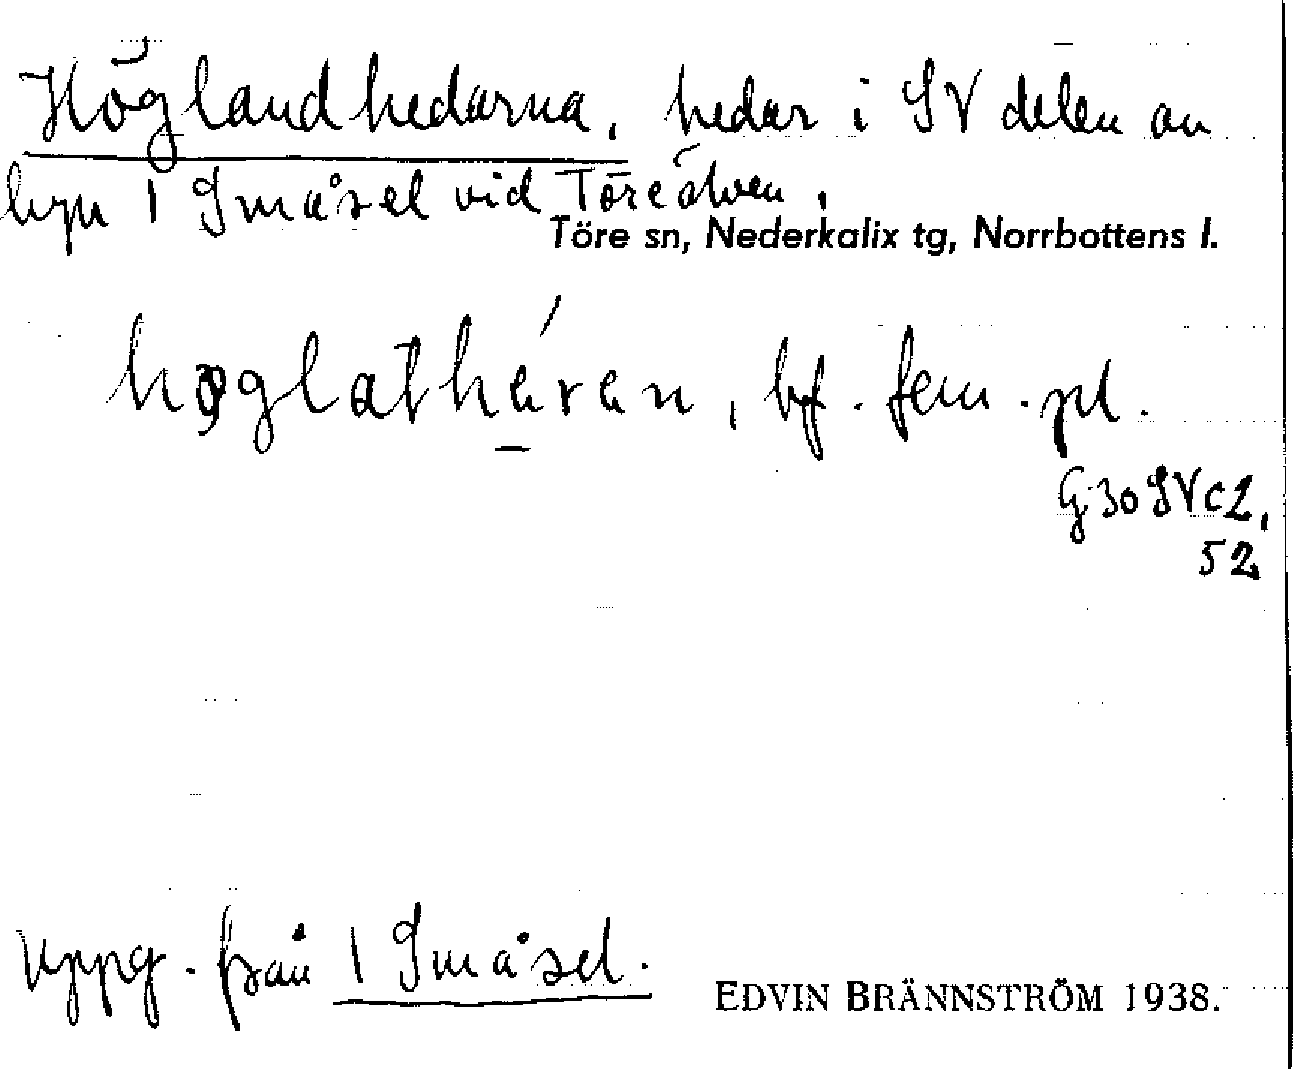 Höglandhedarna, hedar i SV delen av
byn 1 Småsel vid Töreälven.
Töre sn, Nederkalix tg, Norrbottens l.
høglathéran, bf. fem. pl.
G 30 SV c 2,
52
Uppg. från 1 Småsel.
EDVIN BRÄNNSTRÖM 1938.